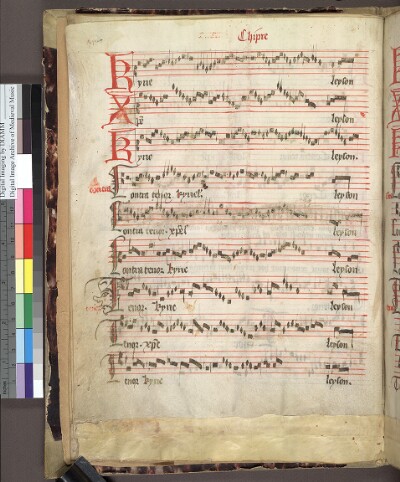 Chipre
Kyrie leyson
Xpe leyson
Kyrie leyson.
Contra tenor. kyriel. leyson
Contra tenor. xpel leyson
Contra tenor kyrie leyson
Tenor. kyrie leyson
Tenor. xpe leyson
Tenor kyrie leyson.
Digital Imaging by DIAMM
Digital Image Archive of Medieval Music